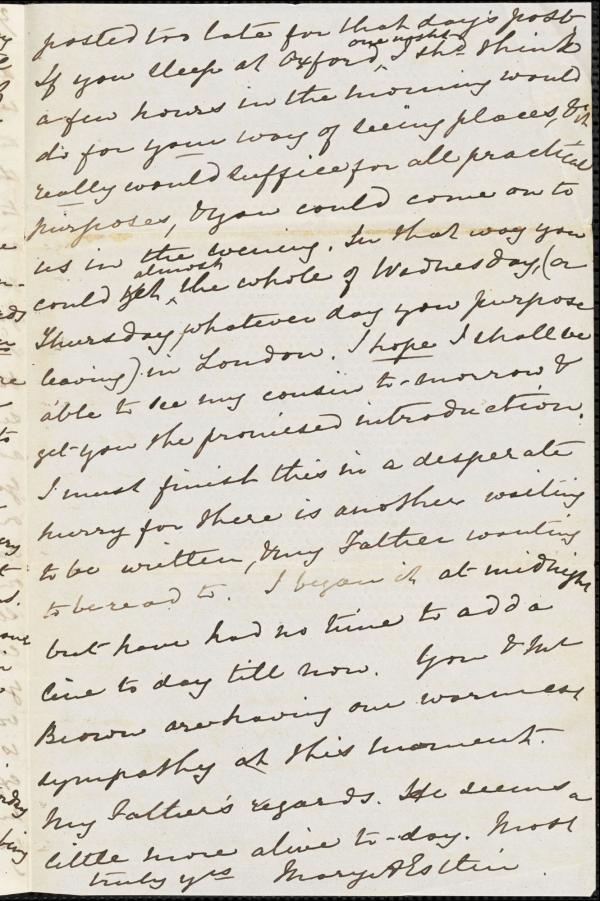 posted too late for that day's post,
If you sleep at Oxford one night I shd think
a few hours in the morning would
do for your way of seeing places, & it
really would suffice for all practical
purposes, & you could come on to
us in the evening. In that way you
could almost the whole of Wednesday, (or
Thursday, whatever day you purpose
leaving) in London. I hope I shall be
able to see my cousin to-morrow &
get you the promised introduction.
I must finish this in a desperate
hurry for there is another waiting
to be written, & my Father wanting
to be read to. I began it at midnight
but have had no time to add a
line to day till now. You & Mr
Brown are having our warmest
sympathy at this moment.
My Father's regards. He seems a
little more alive to-day. Most
truly yrs Mary A Estlin.